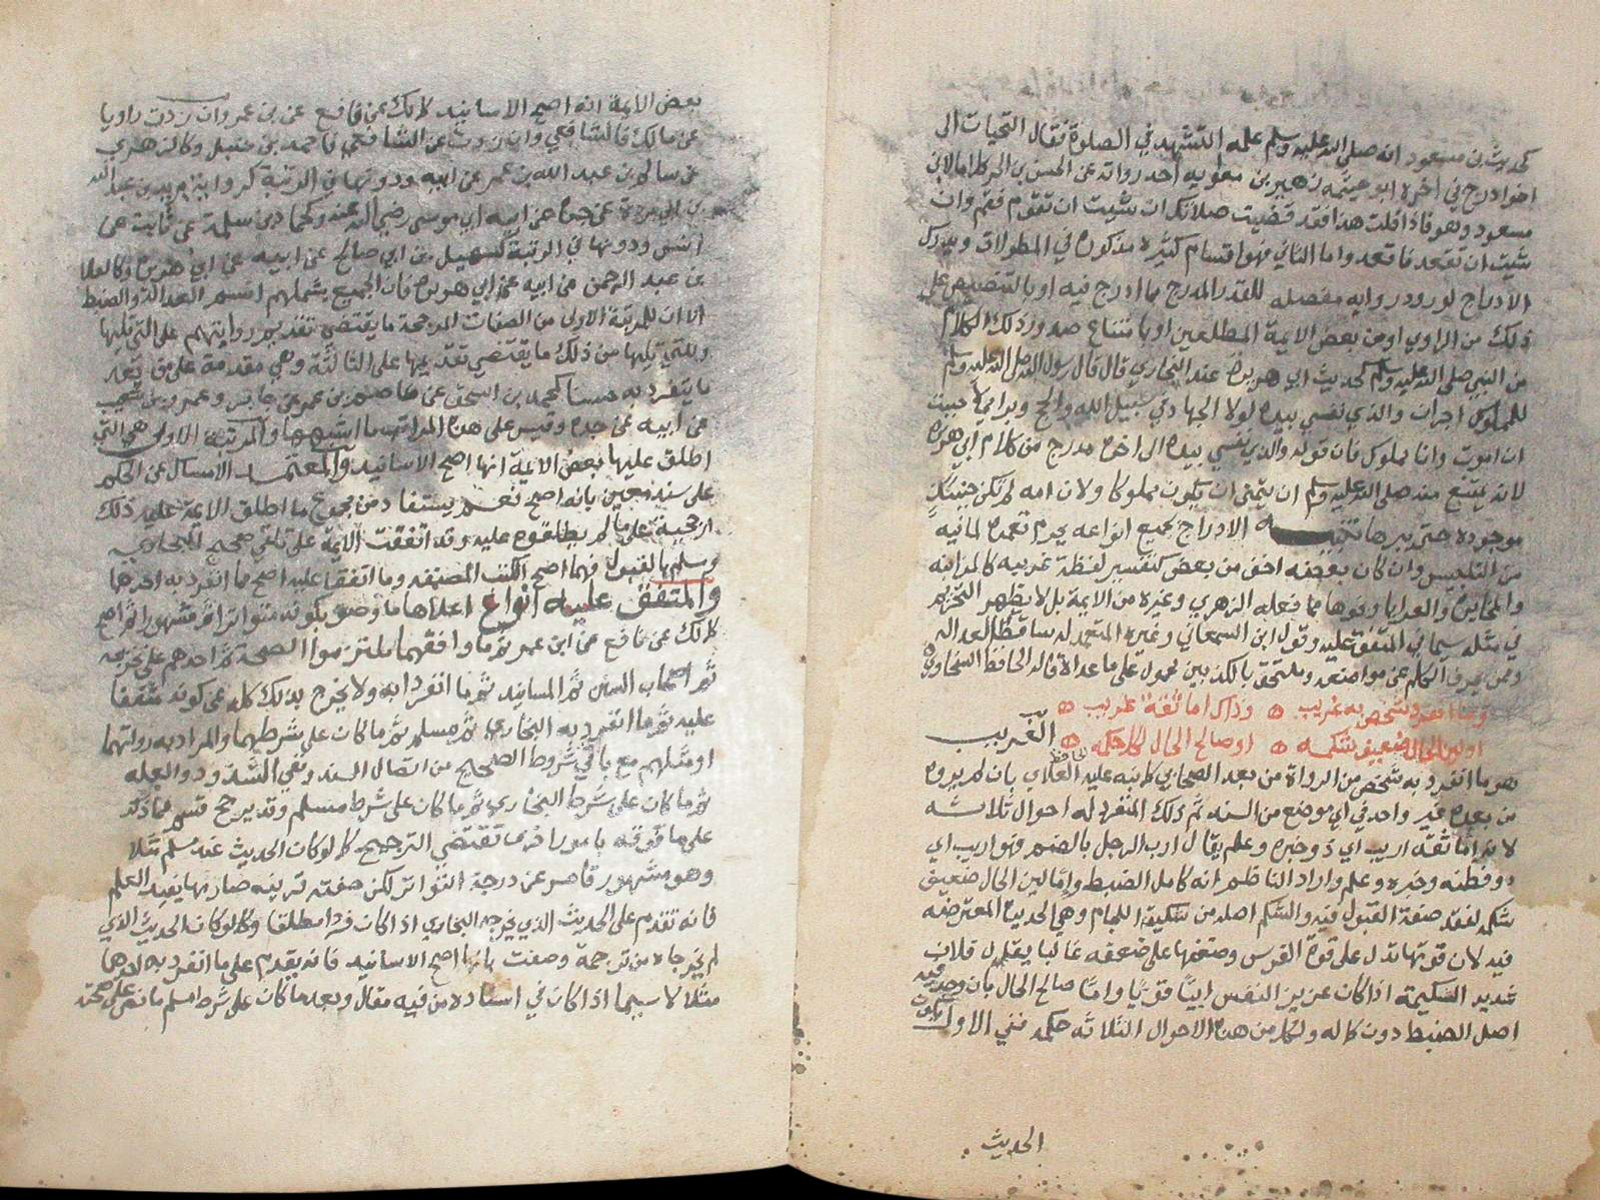 كحديث بن مسعود انه صلى الله عليه وسلم علمه التشهد في الصلوة فقال التحيات الى
اخره ادرج في اخره ابو خيثمه زهير بن معويه احد رواته عن الحسن بن الحر كلاما لابن
مسعود وهو فاذا قلت هذا فقد قضيت صلاتك ان شيت ان تقوم فقم وان
شيت ان تقعد فاقعد واما الثاني فهو اقسام كثيره مذكوره في المطولات ويدرك
الادراج لورود روايه مفصله للقدر المدرج مما ادرج فيه او بالتنصيص على
ذلك من الراوي او من بعض الايمة المطلعين او بامتناع صدور ذلك الكلام
من النبي صلى الله عليه وسلم كحديث ابي هريرة عند البخاري قال قال رسول الله صلى الله عليه وسلم
للمملوك اجران والذي نفسي بيده لولا الجهاد في سبيل الله والحج وبر امي لاحببت
ان اموت وانا مملوك فان قوله والذي نفسي بيده الى اخره مدرج من كلام ابي هريرة
لانه يمتنع منه صلى الله عليه وسلم ان يتمنى ان يكون مملوكا ولان امه لم تكن حينئذ
موجوده حتى يبرها تنبيه الادراج بجميع انواعه يحرم تعمده لما فيه
من التلبيس وان كان بعضه اخف من بعض كتفسير لفظة غريبه كالمزابنه
والمخابرة والعرايا ونحوها مما فعله الزهري وغيره من الايمة بل لا يظهر التحريم
في مثله سيما في المتفق عليه وقول ابن السمعاني وغيره المتعمد له ساقط العداله
وممن يحرف الكلم عن مواضعه وملتحق بالكذابين محمول على ما عداه قاله الحافظ السخاوي
وما انفرد شخص به غريب وذاك اما ثقة اريب
او لين الحال ضعيف شكمه او صالح الحال لكل حكمه الغريب
هو ما انفرد به شخص من الرواة من بعد الصحابي كما نبه عليه الحافظ العلاي بان لم يروه
من بعده غير واحد في اي موضع من السند ثم ذلك المنفرد له احوال ثلاثه
لانه اما ثقة اريب اي ذو خبره وعلم يقال ارب الرجل بالضم فهو اريب اي
ذو فطنه وخبره وعلم واراد الناظم انه كامل الضبط واما لين الحال ضعيف
شكمه لفقد صفة القبول فيه والشكم اصله من شكيمة اللجام وهي الحديدة المعترضه
فيه لان قوتها تدل على قوة الفرس وضعفها على ضعفه غالبا يقال فلان
شديد الشكيمة اذا كان عزيز النفس ابيا قويا واما صالح الحال بان وجد فيه
اصل الضبط دون كماله ولكل من هذه الاحوال الثلاثه حكمه ففي الاول يكون
الحديث
بعض الايمة انه اصح الاسانيد كمالك عن نافع عن بن عمر وان زدت راويا
عن مالك فالشافعي وان زدت عن الشافعي فاحمد بن حنبل وكالزهري
عن سالم بن عبد الله بن عمر عن ابيه ودونها في الرتبة كرواية بريد بن عبد الله
بن ابي بردة عن جده عن ابيه ابي موسى رضي الله عنه وكحماد بن سلمة عن ثابت عن
انس ودونها في الرتبة كسهيل بن ابي صالح عن ابيه عن ابي هريرة وكالعلا
بن عبد الرحمن عن ابيه عن ابي هريرة فان الجميع يشملهم اسم العدالة والضبط
الا ان للمرتبة الاولى من الصفات المرجحة ما يقتضي تقديم روايتهم على التي تليها
وللتي تليها من ذلك ما يقتضي تقديمها على الثالثة وهي مقدمة على من يعد
ما يتفرد به حسنا كمحمد بن اسحق عن عاصم بن عمر عن جابر وعمرو بن شعيب
عن ابيه عن جده وقس على هذه المراتب ما اشبهها والمرتبة الاولى هي التي
اطلق عليها بعض الايمة انها اصح الاسانيد والمعتمد الامساك عن الحكم
على سند معين بانه اصح نعم يستفاد من مجموع ما اطلق الايمة عليه ذلك
ارجحيته على ما لم يطلقوه عليه وقد اتفقت الايمة على تلقي صحيح البخاري
ومسلم بالقبول فهما اصح الكتب المصنفه وما اتفقا عليه اصح مما انفرد به احدهما
والمتفق عليه انواع اعلاها ما وصف بكونه متواترا ثم مشهورا ثم اصح
كمالك عن نافع عن ابن عمر ثم ما وافقهما ملتزموا الصحة ثم احدهم على تخريجه
ثم اصحاب السنن ثم المسانيد ثم ما انفردا به ولا يخرج بذلك كله عن كونه متفقا
عليه ثم ما انفرد به البخاري ثم مسلم ثم ما كان على شرطهما والمراد به رواتهما
او مثلهم مع باقي شروط الصحيح من اتصال السند ونفي الشذوذ والعله
ثم ما كان على شرط البخاري ثم ما كان على شرط مسلم وقد يرجح قسم مما ذكر
على ما فوقه بامور اخرى تقتضي الترجيح كما لو كان الحديث عند مسلم مثلا
وهو مشهور قاصر عن درجة التواتر لكن صفته قرينه صار بها يفيد العلم
فانه تقدم على الحديث الذي يخرجه البخاري اذا كان فردا مطلقا وكما لو كان الحديث الذي
لم يخرجاه من ترجمة وصفت بانها اصح الاسانيد فانه يقدم على ما انفرد به احدهما
مثلا لا سيما اذا كان في اسناده من فيه مقال وبعد ما كان على شرط مسلم ما نص على صحته